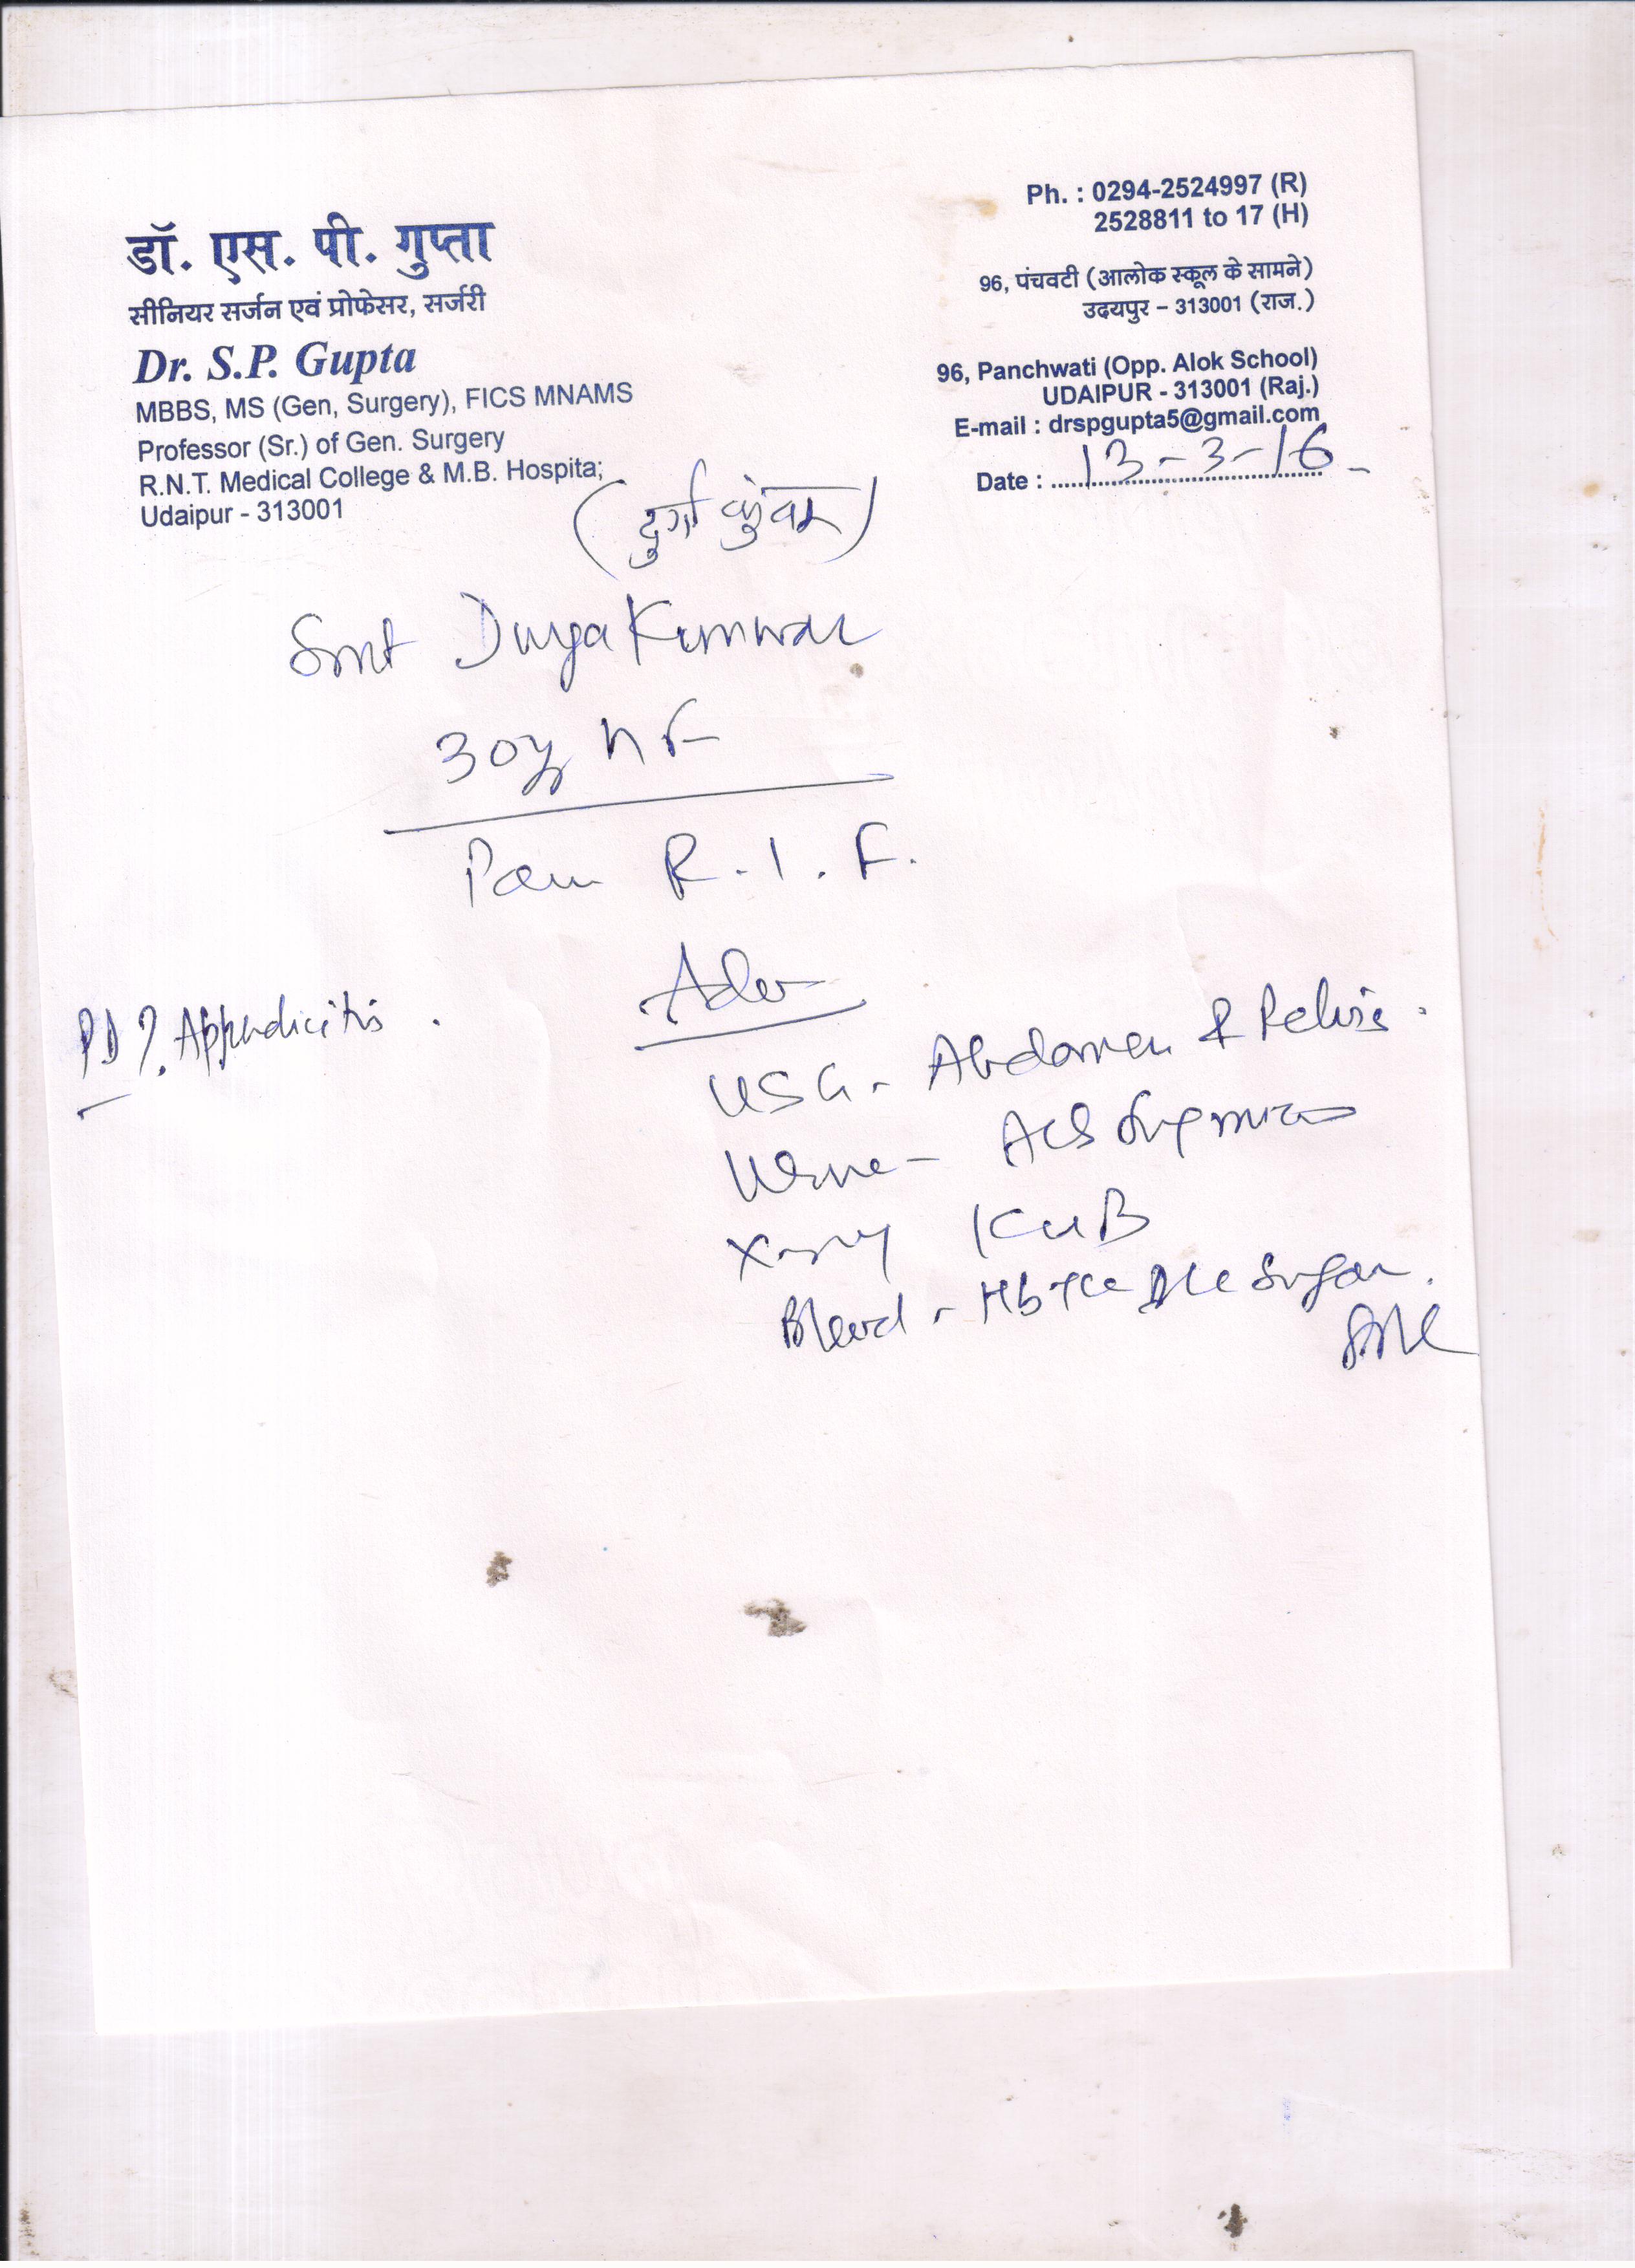 डॉ. एस. पी. गुप्ता
सीनियर सर्जन एवं प्रोफेसर, सर्जरी
Dr. S.P. Gupta
MBBS, MS (Gen, Surgery), FICS MNAMS
Professor (Sr.) of Gen. Surgery
R.N.T. Medical College & M.B. Hospita;
Udaipur - 313001
Ph. : 0294-2524997 (R)
2528811 to 17 (H)
96, पंचवटी (आलोक स्कूल के सामने)
उदयपुर – 313001 (राज.)
96, Panchwati (Opp. Alok School)
UDAIPUR - 313001 (Raj.)
E-mail : drspgupta5@gmail.com
Date : 13-3-16
(दुर्गा कुंवर)
Smt Durga Kunwar
30y F
Pain R.I.F.
Adv
PD ? Appendicitis.
USG - Abdomen & Pelvis.
Urine - Alb Sug micro
X-ray KUB
Blood - Hb TLC DLC Sugar.